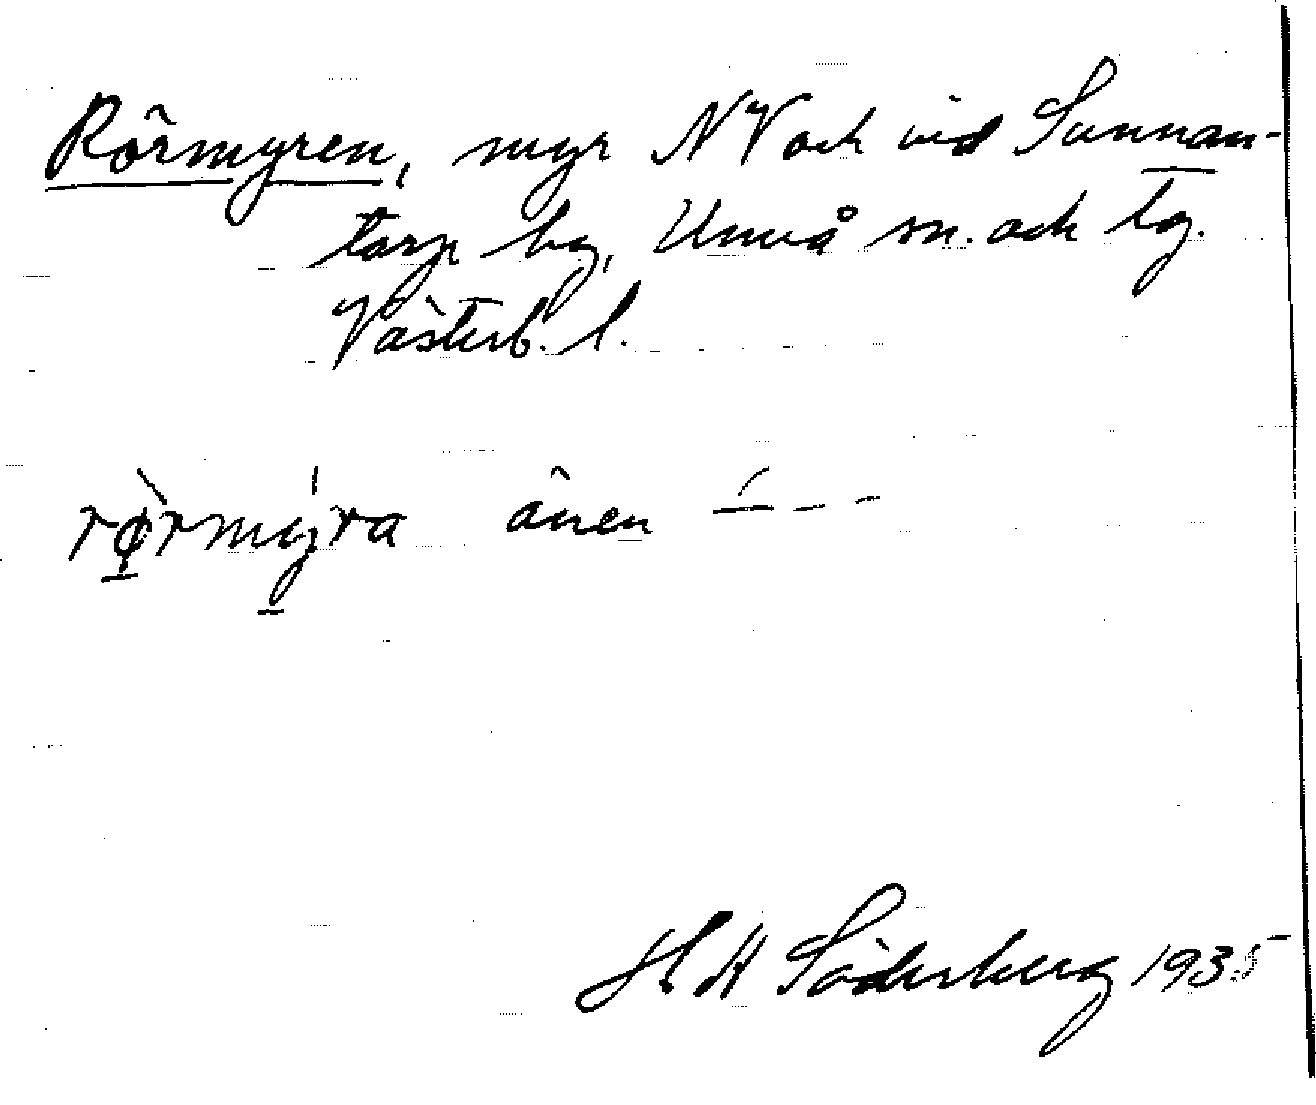 Rörmyren, myr NV och vid Sunnan-
torp by, Umeå sn. och tg.
Västerb. l.
rø̀rmýra även
H A Söderberg 1935